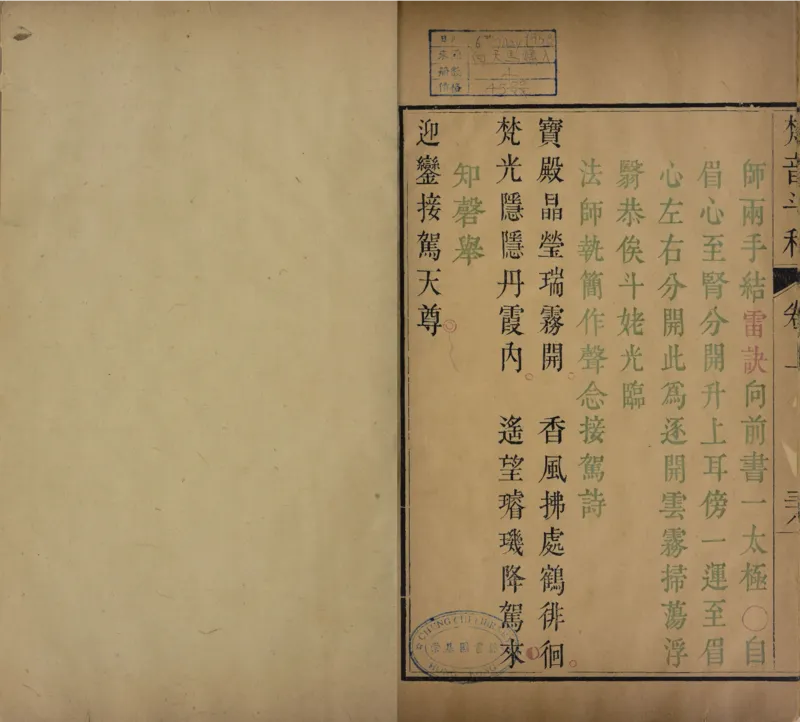 師兩手結雷訣向前書一太極〇自
眉心至腎分開升上耳傍一運至眉
心左右分開此爲逐開雲霧掃蕩浮
翳恭俟斗姥光臨
法師執簡作聲念接駕詩
寶殿晶瑩瑞霧開 香風拂處鶴徘徊
梵光隱隱丹霞內 遙望璿璣降駕來
知磬舉
迎鑾接駕天尊